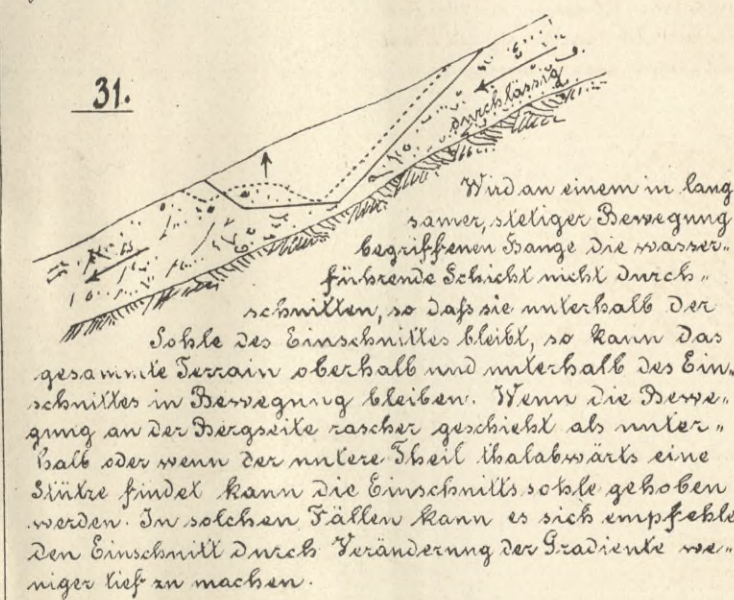 31.
durchlässig
Wird an einem in lang
samer, stetiger Bewegung
begriffenen Hange die wasser-
führende Schicht nicht durch-
schnitten, so daß sie unterhalb der
Sohle des Einschnittes bleibt, so kann das
gesammte Terrain oberhalb und unterhalb des Ein-
schnittes in Bewegung bleiben. Wenn die Bewe-
gung an der Bergseite rascher geschieht als unter-
halb oder wenn der untere Theil thalabwärts eine
Stütze findet kann die Einschnittssohle gehoben
werden. In solchen Fällen kann es sich empfehle
den Einschnitt durch Veränderung der Gradiente we-
niger tief zu machen.